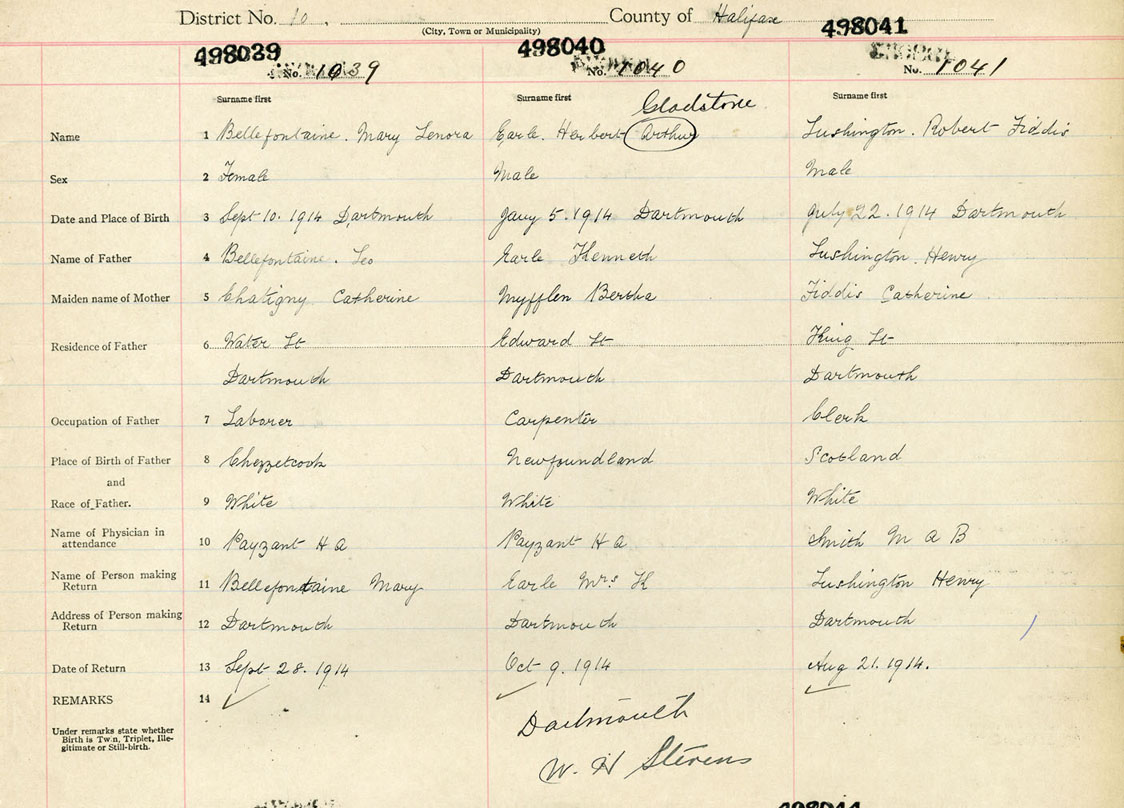 District No. 10. County of Halifax
(City, Town or Municipality)
498039 498040 498041
No. 1039 No. 1040 No. 1041
Surname first Surname first Surname first
Gladstone
Name 1 Bellefontaine. Mary Lenora Earle. Herbert Arthur Lushington. Robert Fiddis
Sex 2 Female Male Male
Date and Place of Birth 3 Sept 10. 1914 Dartmouth Jany 5. 1914 Dartmouth July 22. 1914 Dartmouth
Name of Father 4 Bellefontaine. Leo Earle Kenneth Lushington. Henry
Maiden name of Mother 5 Chatigny Catherine Myfflen Bertha Fiddis Catherine
Residence of Father 6 Water St Edward St King St
Dartmouth Dartmouth Dartmouth
Occupation of Father 7 Laborer Carpenter Clerk
Place of Birth of Father 8 Chezzetcook Newfoundland Scotland
and
Race of Father. 9 White White White
Name of Physician in
attendance 10 Payzant H A Payzant H A Smith M A B
Name of Person making
Return 11 Bellefontaine Mary Earle Mrs K Lushington Henry
Address of Person making
Return 12 Dartmouth Dartmouth Dartmouth
Date of Return 13 Sept. 28. 1914 Oct 9. 1914 Aug 21. 1914.
REMARKS 14
Dartmouth
Under remarks state whether
Birth is Twin, Triplet, Ille-
gitimate or Still-birth.
W. H Stevens